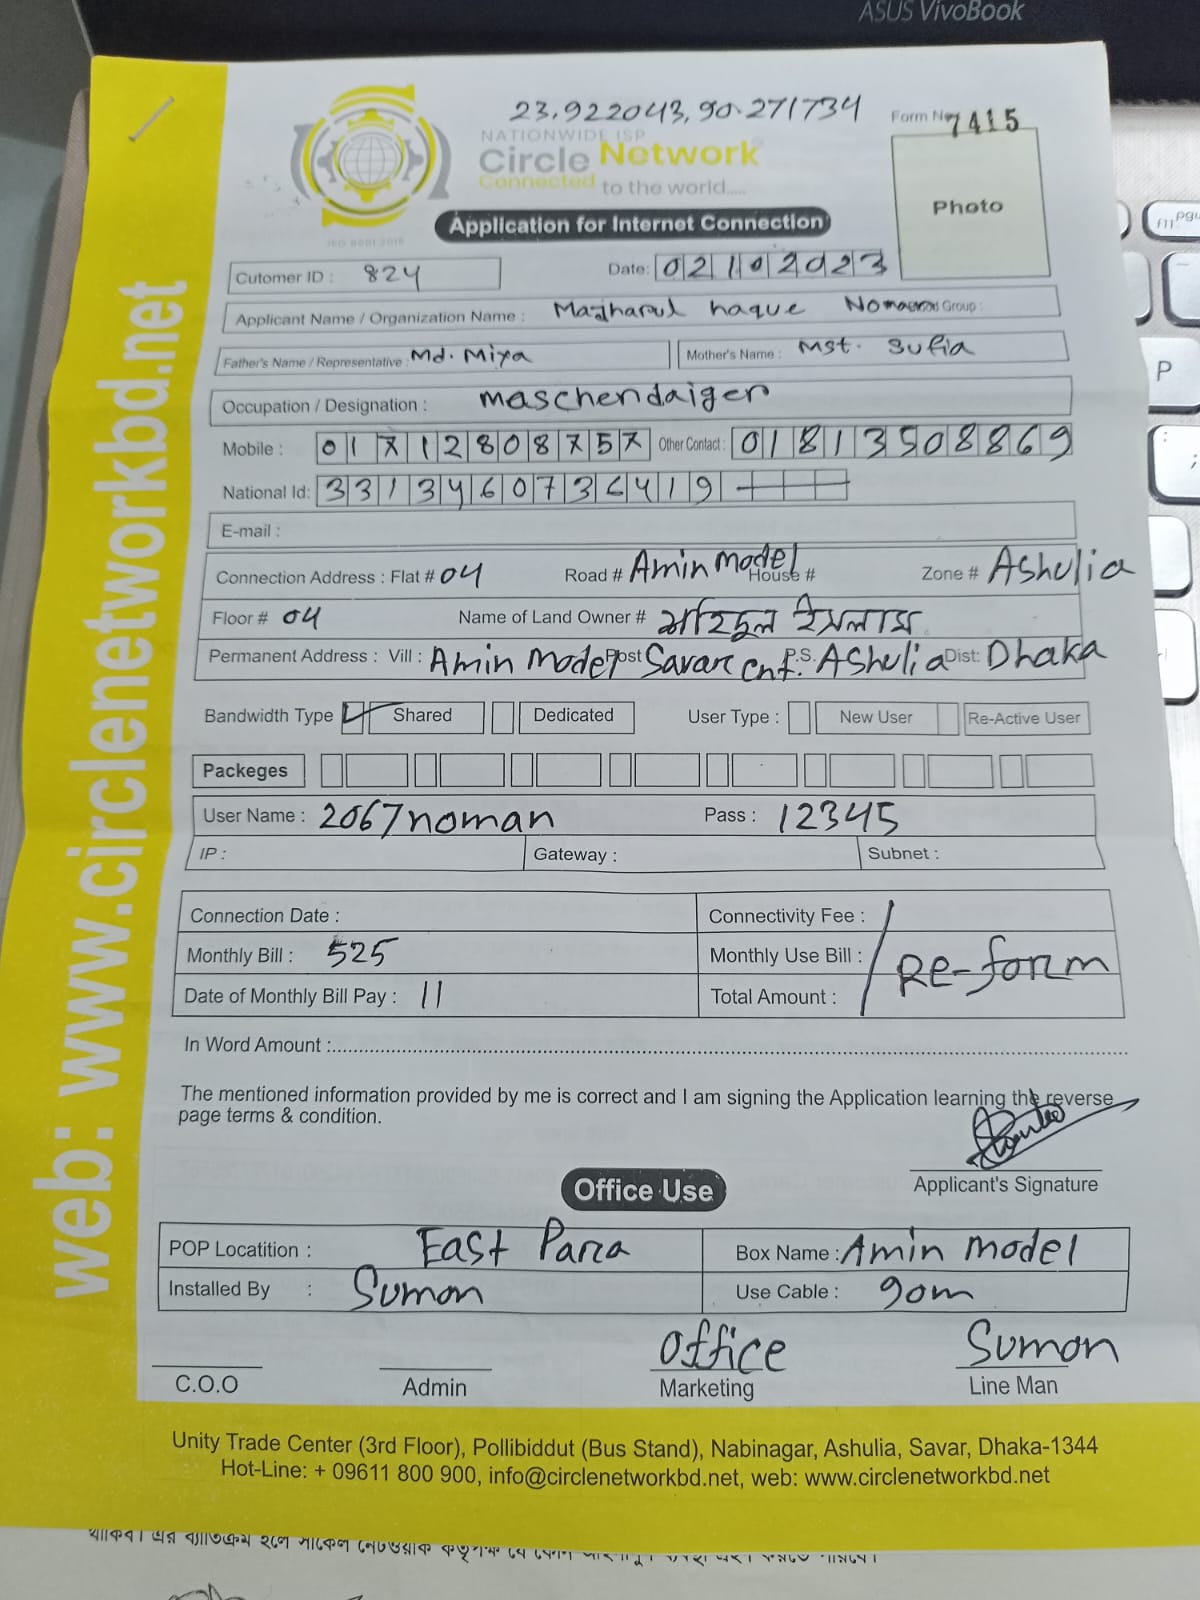 ASUS VivoBook
23.922043, 90.271734
Form No 7415
NATIONWIDE ISP
Circle Network
Connected to the world.....
Photo
Application for Internet Connection
ISO 9001:2015
Cutomer ID : 824
Date: 02102023
Applicant Name / Organization Name : Mazharul haque Noman Group :
Father's Name / Representative : Md. Miya Mother's Name : Mst. Sufia
Occupation / Designation : maschendaiger
Mobile : 01712808757 Other Contact : 01813508869
National Id: 3313460736419
E-mail :
Connection Address : Flat # 04 Road # Amin Model House # Zone # Ashulia
Floor # 04 Name of Land Owner # ইসলাম
Permanent Address : Vill : Amin Model Post Savar Cnt. P.S. Ashulia Dist: Dhaka
Bandwidth Type Shared Dedicated User Type : New User Re-Active User
Packeges
User Name : 2067noman Pass : 12345
IP : Gateway : Subnet :
Connection Date : Connectivity Fee :
Monthly Bill : 525 Monthly Use Bill : Re-form
Date of Monthly Bill Pay : 11 Total Amount :
In Word Amount :
The mentioned information provided by me is correct and I am signing the Application learning the reverse
page terms & condition.
Applicant's Signature
Office Use
POP Locatition : East Para Box Name : Amin Model
Installed By : Sumon Use Cable : 90m
Office Sumon
C.O.O Admin Marketing Line Man
Unity Trade Center (3rd Floor), Pollibiddut (Bus Stand), Nabinagar, Ashulia, Savar, Dhaka-1344
Hot-Line: + 09611 800 900, info@circlenetworkbd.net, web: www.circlenetworkbd.net
web: www.circlenetworkbd.net
P